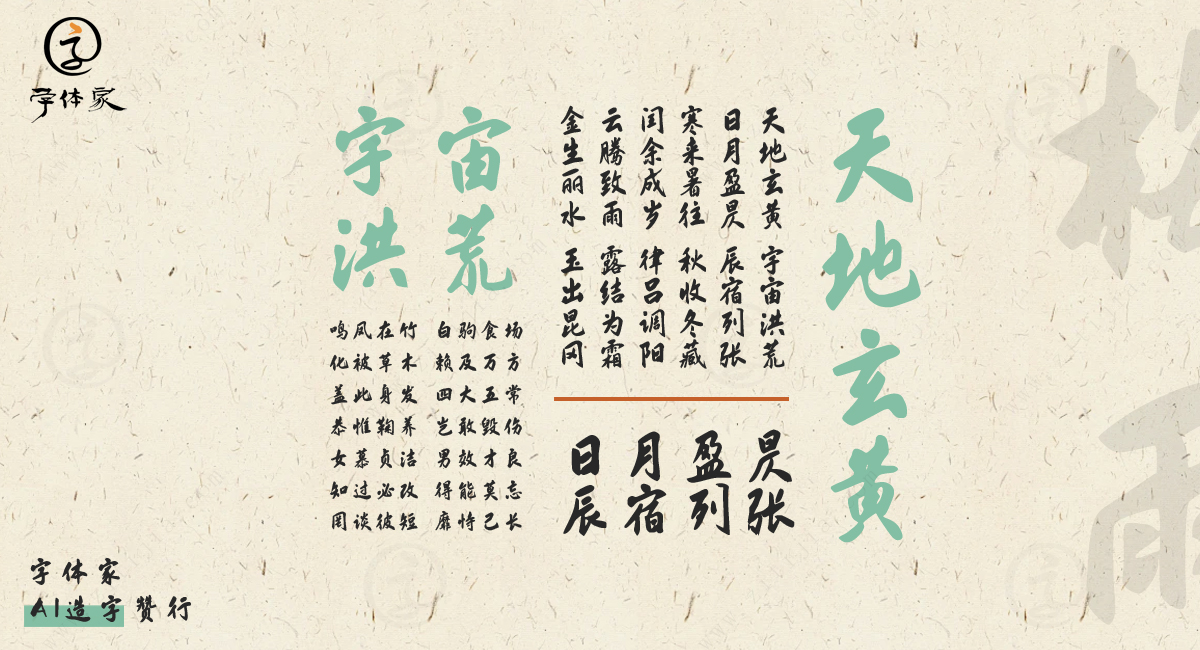 字
字体家
天地玄黄
天地玄黄 宇宙洪荒
日月盈昃 辰宿列张
寒来暑往 秋收冬藏
闰余成岁 律吕调阳
云腾致雨 露结为霜
金生丽水 玉出昆冈
日月盈昃
辰宿列张
宇宙
洪荒
鸣凤在竹 白驹食场
化被草木 赖及万方
盖此身发 四大五常
恭惟鞠养 岂敢毁伤
女慕贞洁 男效才良
知过必改 得能莫忘
罔谈彼短 靡恃己长
字体家
AI造字赞行